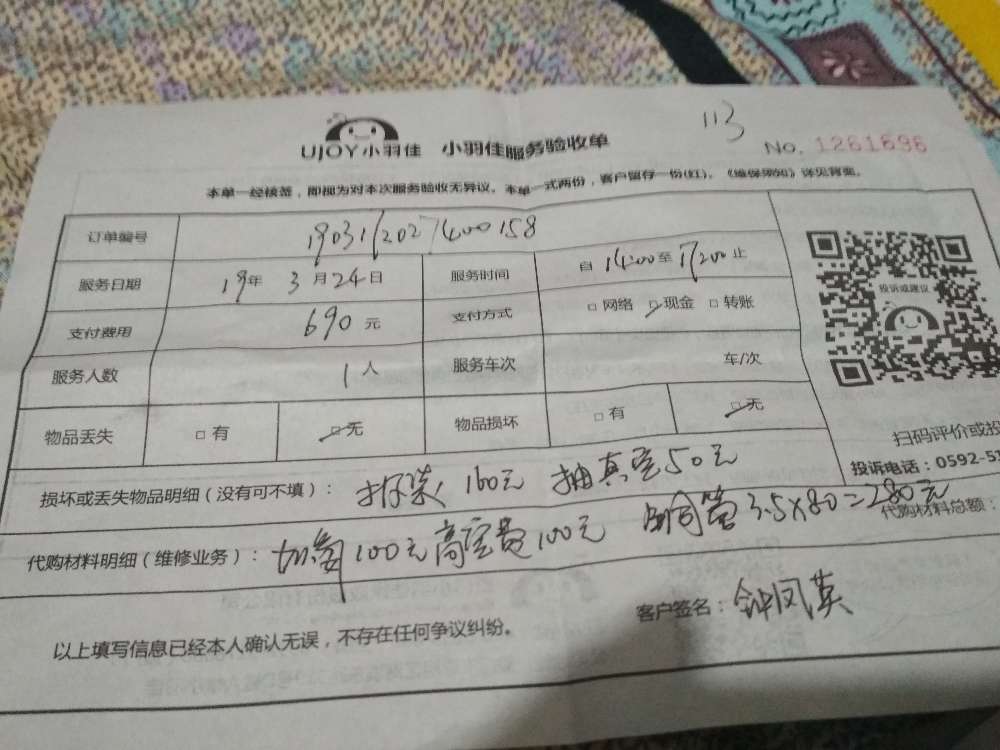 113
UJOY小羽佳 小羽佳服务验收单 No. 1261696
本单一经核签，即视为对本次服务验收无异议。本单一式两份，客户留存一份(红)。《维保须知》详见背面。
订单编号 1903112027400158
服务日期 19年 3月24日 服务时间 自 14:00至17:00止
支付费用 690元 支付方式 □网络 ☑现金 □转账
投诉或建议
服务人数 1人 服务车次 车/次
物品丢失 □有 ☑无 物品损坏 □有 ☑无
扫码评价或投
投诉电话：0592-51
损坏或丢失物品明细（没有可不填）： 拆装 160元 抽真空50元
代购材料明细（维修业务）： 加氟100元 高空费100元 铜管3.5×80=280元
代购材料总额：
以上填写信息已经本人确认无误，不存在任何争议纠纷。
客户签名：钟凤英